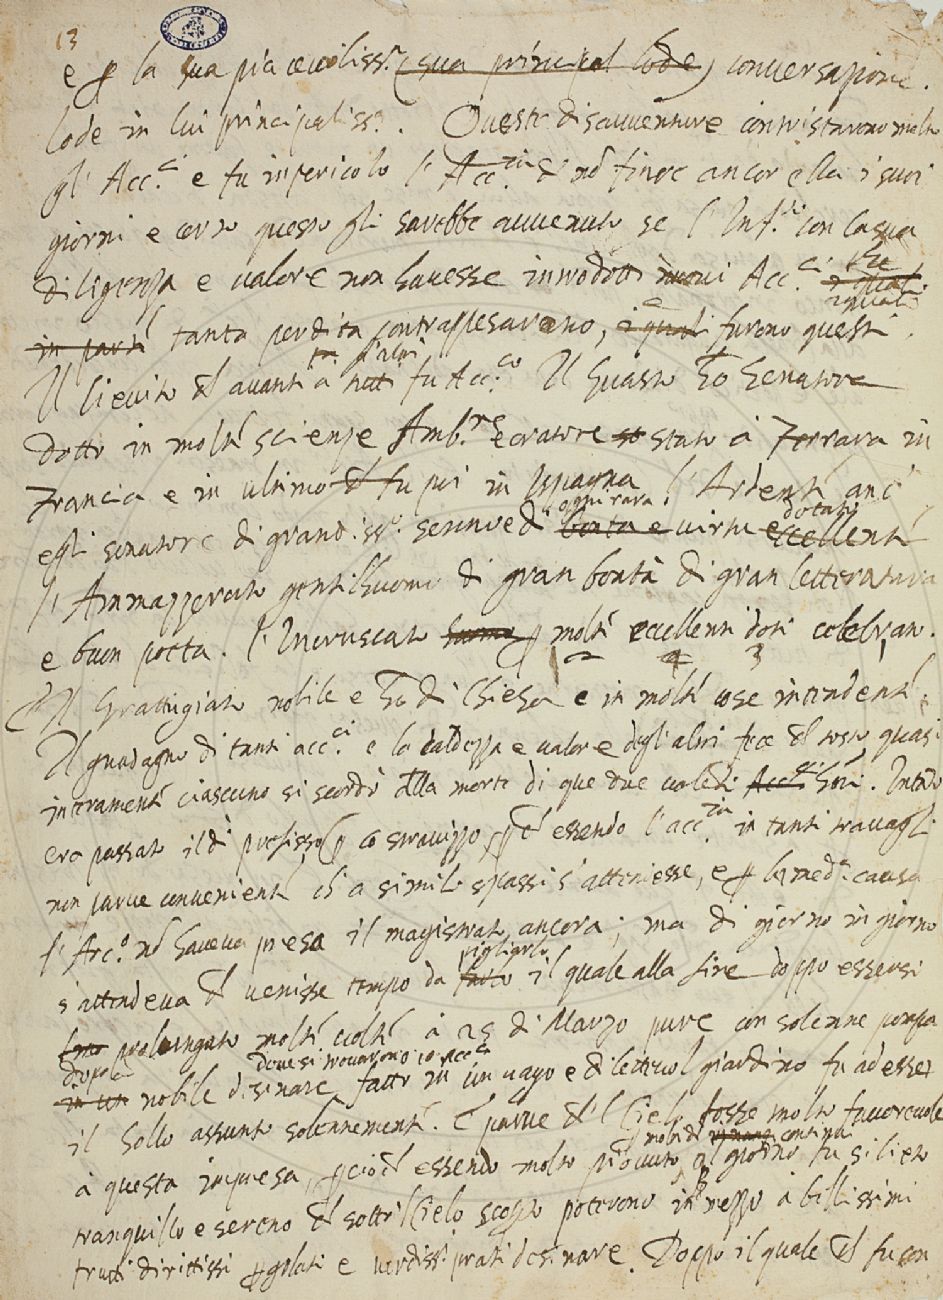 13
e p la sua piacevoliss.ª (sua principal lode) conversazione.
lode in lui principaliss.ª. Queste disavventure contristarono molto
gl' Acc.ci e fu in pericolo l'Acc.mia di nõ finire ancor ella i suoi
giorni e certo questo gli sarebbe avvenuto se l'Inf.to con la sua
che
diligenza e valore non havesse introdotti nuovi Acc.ci i quali
i quali
in parte tanta perdita contrappesarono, i quali furono questi.
gl'altri
Il lievito che avanti à tutti fu Acc.co Il Guasto hõ Senatore
dotto in molte scienze Amb.re e oratore stato à Ferrara in
Francia e in ultimo che fu poi in Ispagna l'Ardente anc'
ogni rara dotati
egli senatore di grandiss.º senno e di bontà e virtù eccellenti
l'Ammazzerato gentilhuomo di gran bontà di gran letteratura
e buon poeta. l'Incruscato huomo p molte eccellenti doti celebrato.
2 4 3
Il Grattugiato nobile e hõ di Chiesa e in molte cose intendente
Il guadagno di tanti acc.ci e la caldezza e valore degl'altri fece che tosto quasi
interamente ciascuno si scordò della morte di que due valenti Acc.ci hõri. Intanto
era passato il dì prefisso p lo stravizzo, p che essendo l'acc.mia in tanti travagli
non parve conveniente ch'a simili spassi s'attendesse, e p la med.ª causa
l'Arc.º nõ haveva preso il magistrato ancora; ma di giorno in giorno
pigliarlo
s'attendeva che venisse tempo da farlo il quale alla fine doppo essersi
prolungato molte volte à 25 di Marzo pure con solenne pompa
dopo dove si trovarono 10 Acc.ci
in un nobile desinare fatto in un vago e dilettevol giardino fu ad esser
il Sollo assunto solennemente. E parve che 'l Cielo fosse molto favorevole
molti dì continui
à questa impresa, p cioche essendo molto piovuto, quel giorno fu sì lieto
tranquillo e sereno che sott'il Cielo scoperto poterono in mezzo à bellissimi
frutti dirittissi pgolati e verdiss.i prati desinare. Doppo il quale che fu con